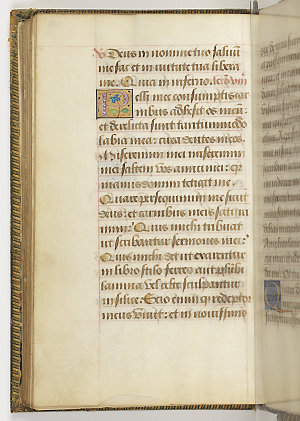 Deus in nomine tuo salvum
me fac et in virtute tua libera
me. Quia in inferno. lectio viii
Pelli mee consumptis car
nibus adhesit os meum:
et derelicta sunt tantummodo
labia mea: circa dentes meos.
Miseremini mei miseremini
mei saltem vos amici mei: quia
manus domini tetigit me.
Quare persequimini me sicut
deus: et carnibus meis satura
mini. Quis michi tribuat
ut scribantur sermones mei:
Quis michi det ut exarentur
in libro stilo ferreo aut plumbi
lamina vel celte sculpantur
in silice. Scio enim quod redemptor
meus vivit: et in novissimo